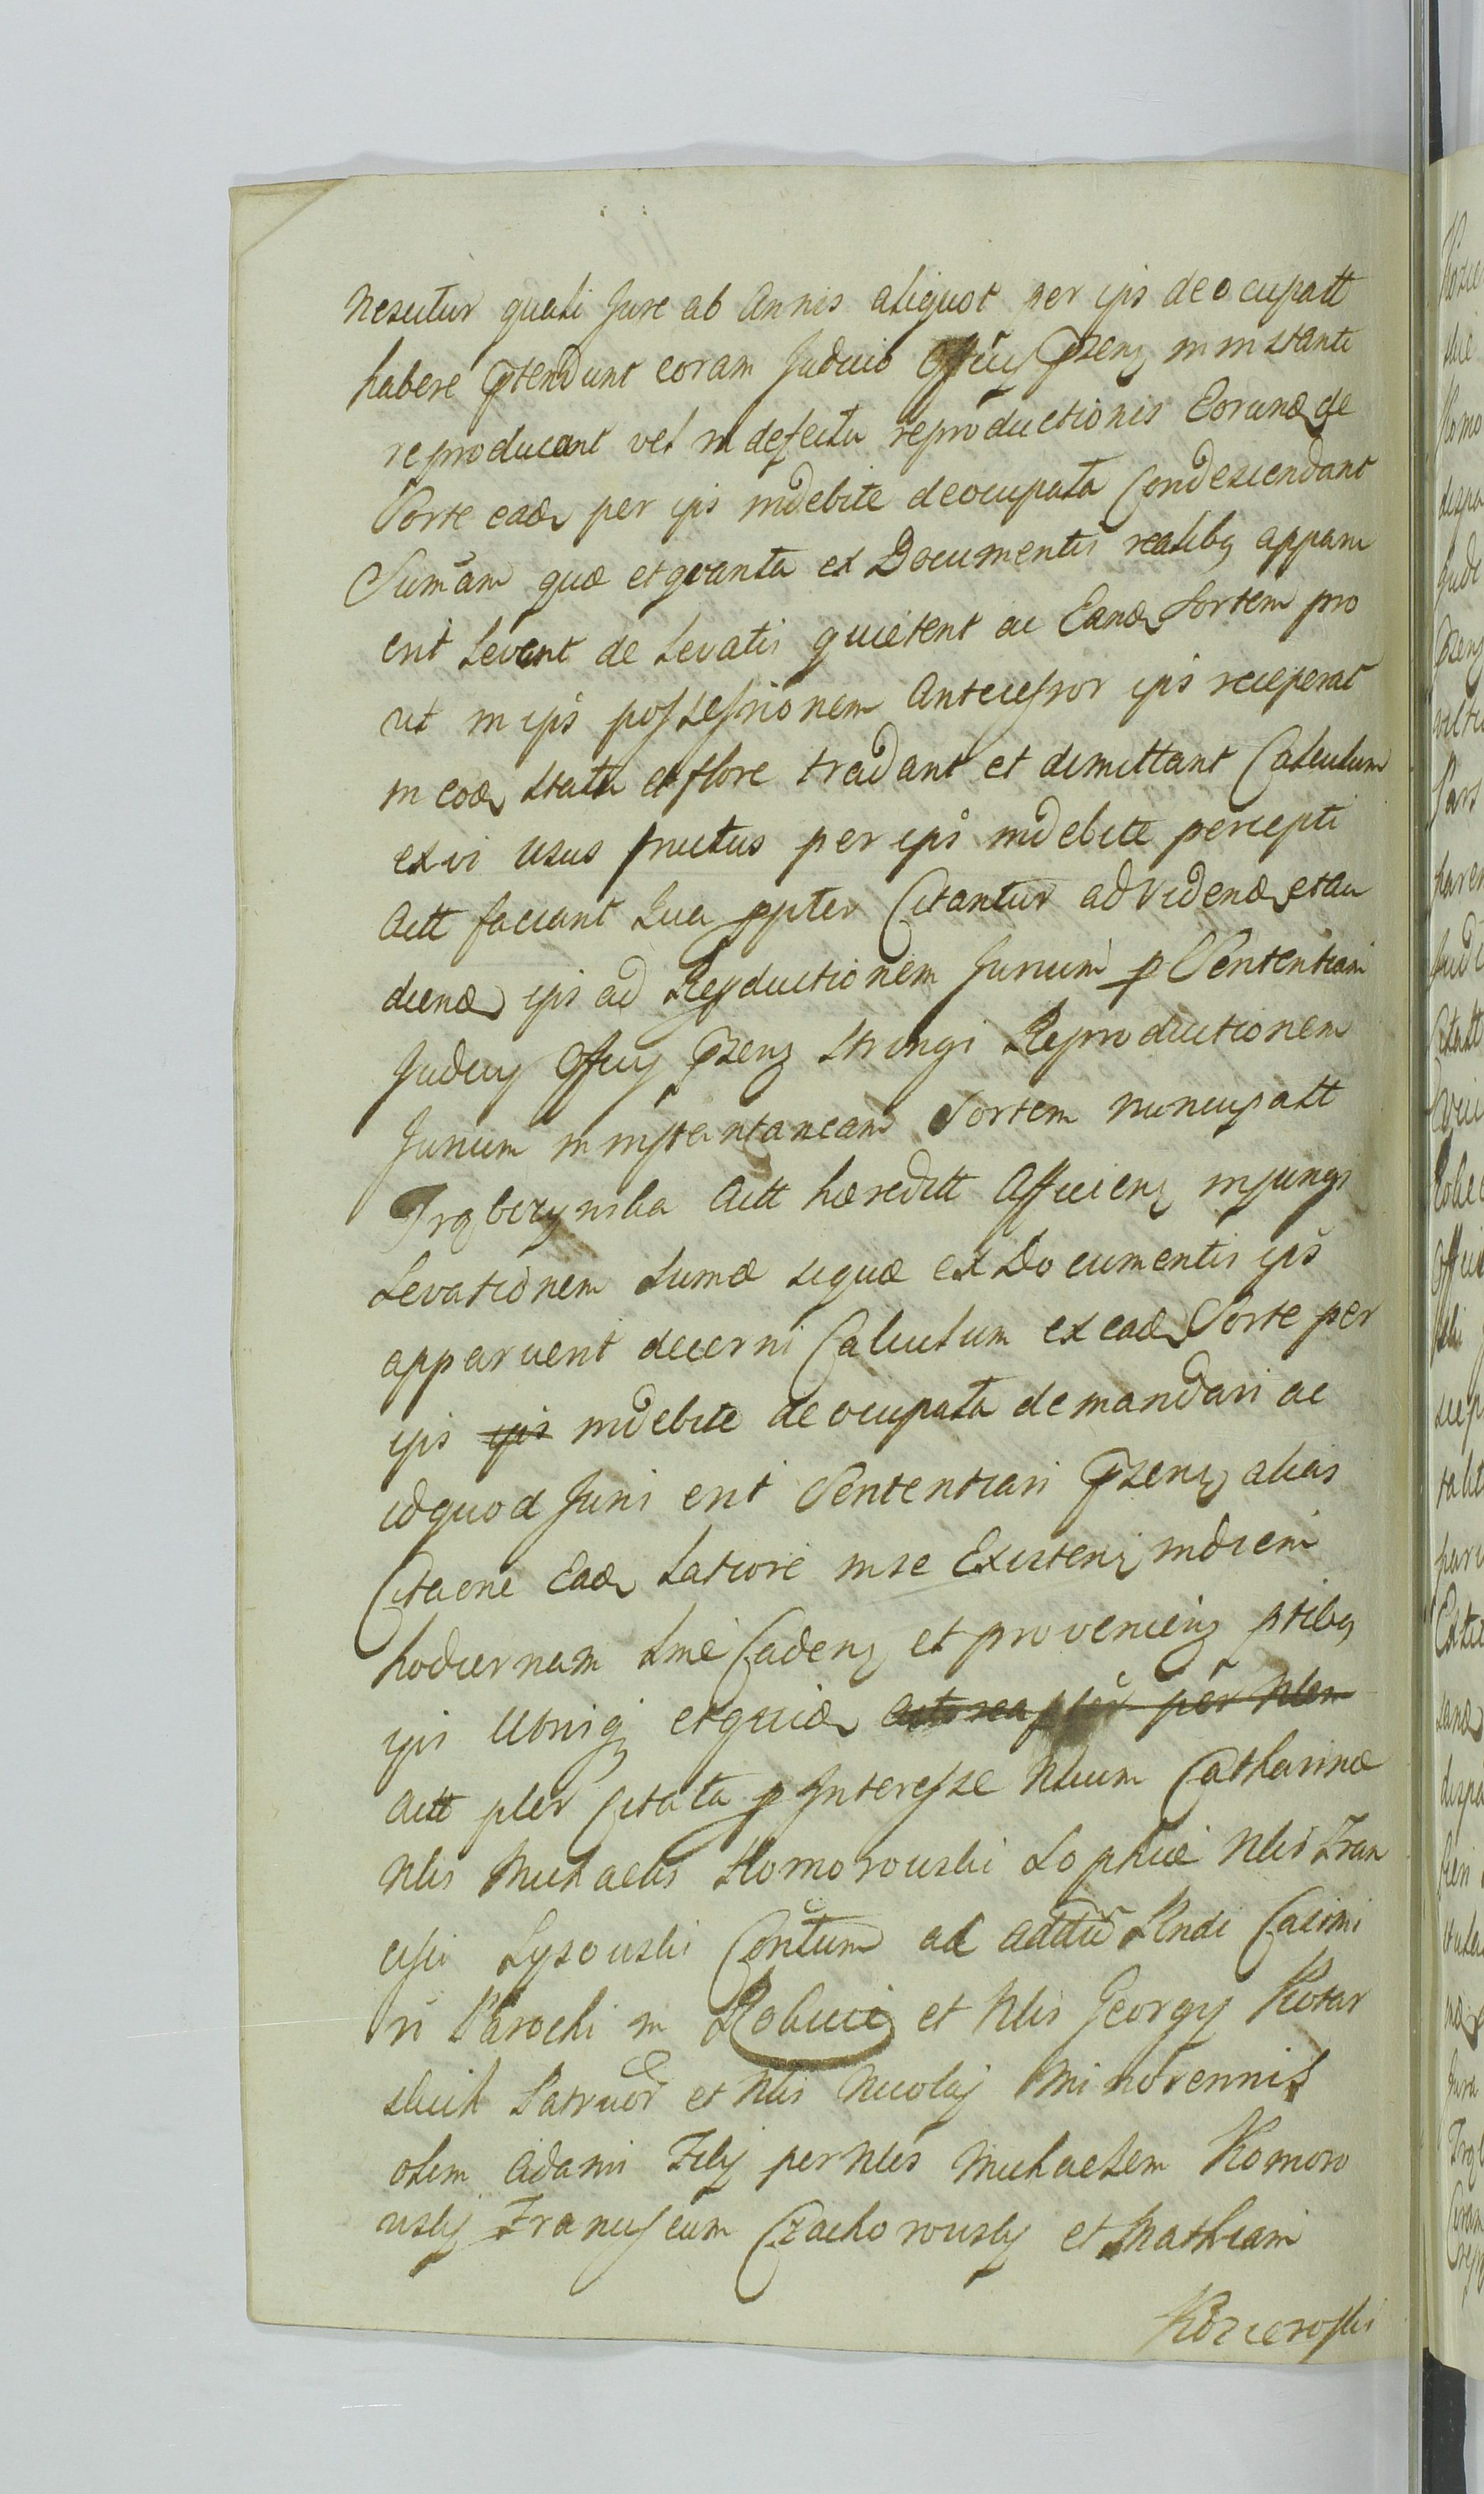 Nescitur quali Jure ab Annis aliquot per ips deocupatt
habere ptendunt coram Judicio Officij Pzenz in instanti
reproducant vel in defectu reproductionis Eorund de
Sorte ead per ips indebite deocupata Condescendant
Sumam quæ et quanta ex Documentis realibq apparu
erit Levent de Levatis quietent ac Eand Sortem pro
ut in ips possessionem Antecessor ips receperat
in eod statu et flore tradant et dimittant Calculum
ex vi usus fructus per ips indebite percepti
Actt faciant Qua ppter Citantur ad Vidend et au
diend ips ad Repductionem Jurium p Sententiam
Judicij Officij Pzenz stringi Reproductionem
Jurium in instantaneam Sortem nuncupatt
Trąbczynska Actt hæreditt Afficienz injungi
Levationem sumæ siquæ ex Documentis ips
apparuerit decerni Calculum ex ead Sorte per
ips ips indebite deocupata demandari ac
id quod Juris erit Sententiari Pzenz alias
Citaone Ead Latiore in se Existenz in diem
hodiernam Sme Cadenz et provenienz ptibq
ips Utrisq et quid
Actt pler Citata p Interesse Nlium Catharinæ
Nlis Michaelis Komorowski Sophiæ Nlis Fran
cisci Lysowski Contum ad additu Rndi Casimi
ri Parochi in Robucic et Nlis Georgij Kotar
skich Patruor et Nlis Nicolaj Minorennis
olim Adami Filij per Nles Michaelem Komoro
wskij Franciscum Czachorowskij et Mathiam
Kozieroski